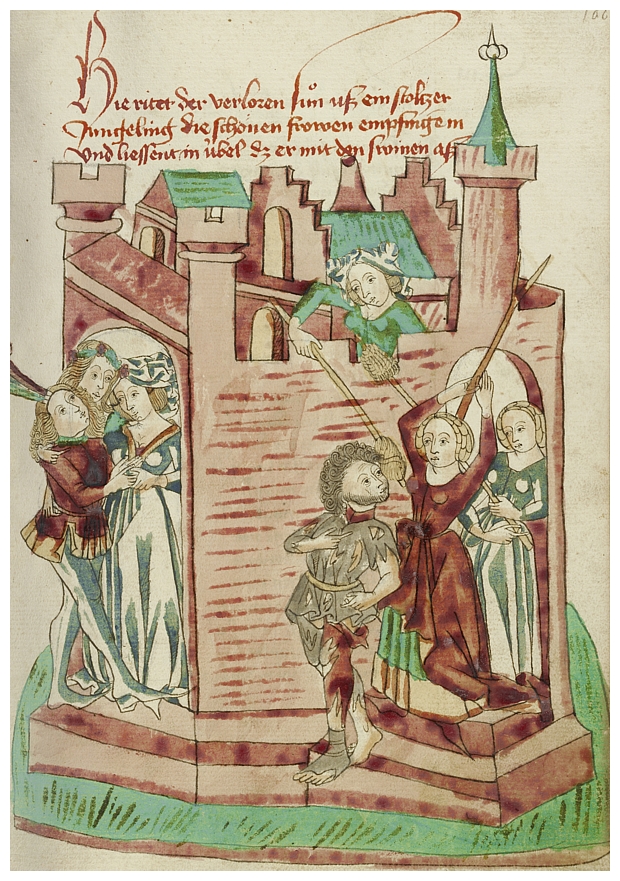 Hie ritet der verloren sůn uß ein stoltzer
Jungeling die schönen frowen empfingen in
Vnd liessent in ubel dz er mit den swinen aß
166